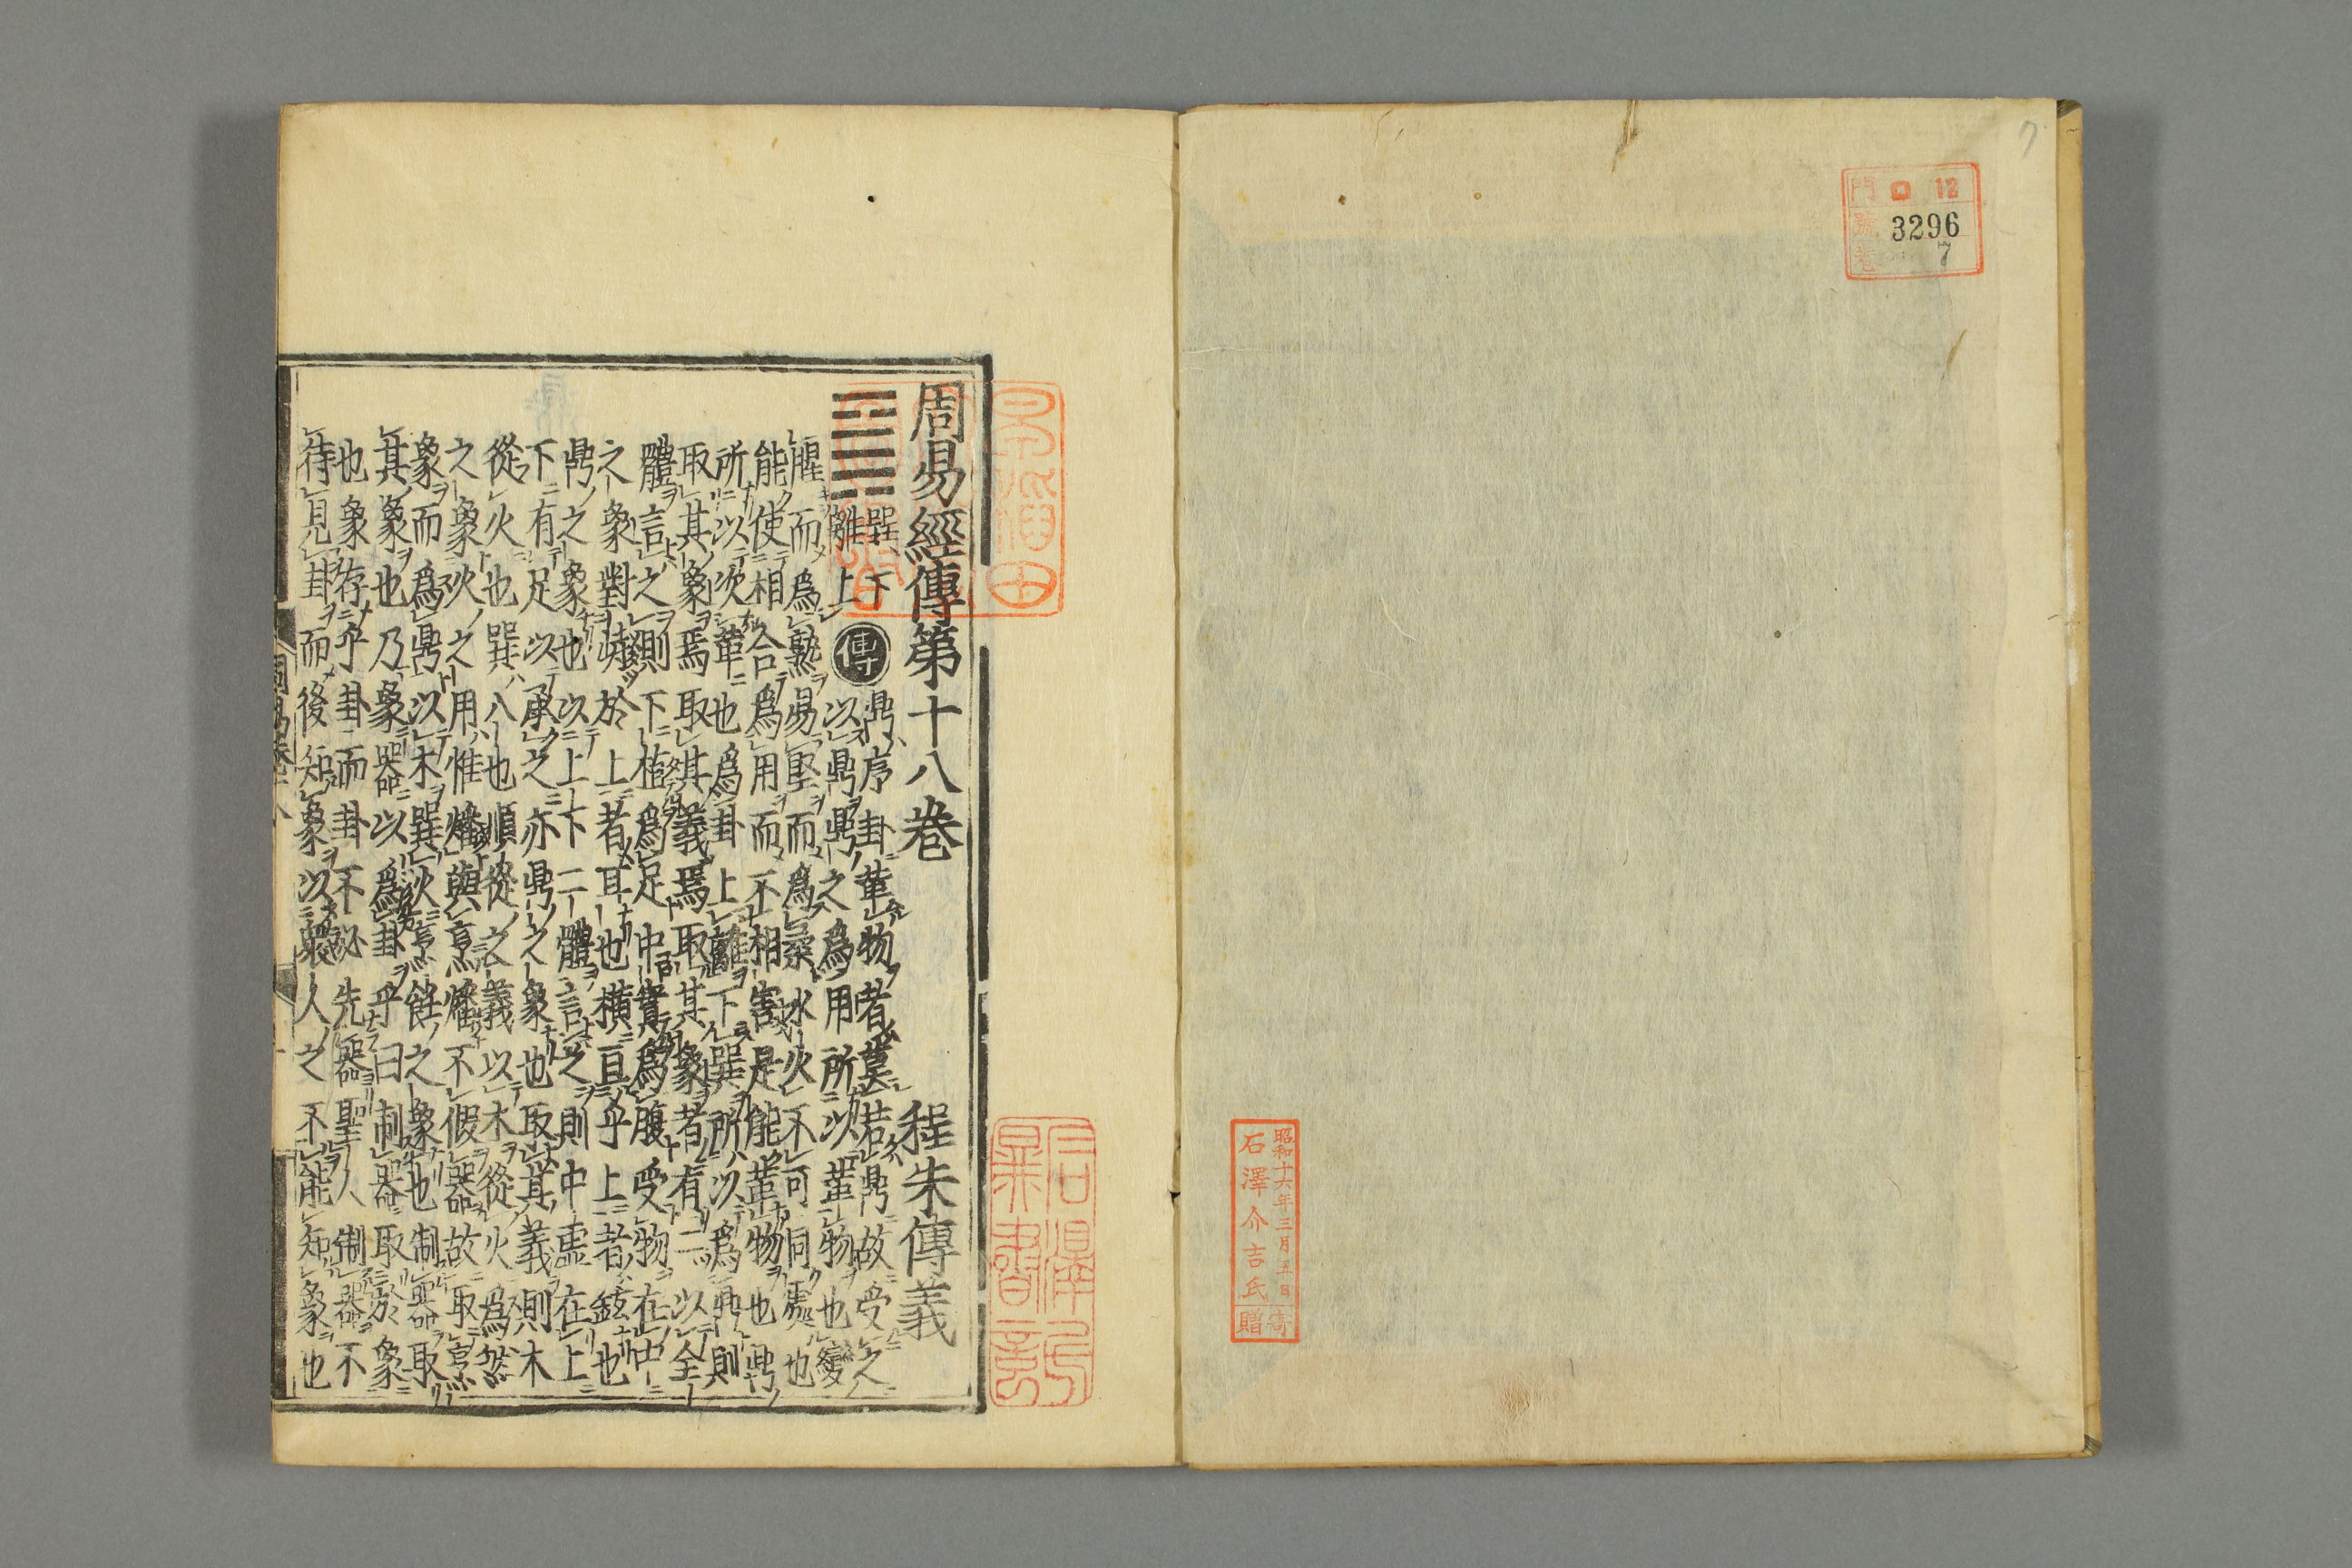 7
門 ロ 12
號 3296
卷 7
昭和十六年三月五日
石澤介吉氏寄贈
周易經傳第十八卷　程朱傳義
䷱
巽下
離上
傳
鼎序卦革物者莫若鼎故受之
以鼎鼎之爲用所以革物也變
腥而爲熟易堅而爲柔水火不可同處也
能使相合爲用而不相害是能革物也鼎
所以次革也爲卦上離下巽所以爲鼎則
取其象焉取其義焉取其象者有二以全
體言之則下植爲足中實爲腹受物在中
之象對峙於上者耳也橫亘乎上者鉉也
鼎之象也以上下二體言之則中虛在上
下有足以承之亦鼎之象也取其義則木
從火也巽入也順從之義以木從火爲然
之象火之用惟燔與烹燔不假器故取烹
象而爲鼎以木巽火烹飪之象也制器取
其象也乃象器以爲卦乎曰制器取於象
也象存乎卦而卦不必先器聖人制器不
待見卦而後知象以衆人之不能知象也